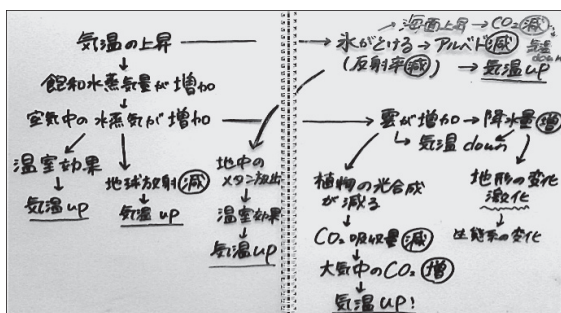 気温の上昇
↓
飽和水蒸気量が増加
↓
空気中の水蒸気が増加
温室効果
↓
気温up
地球放射㊀減
↓
気温up
地中の
メタン放出
↓
温室効果
↓
気温up
海面上昇→CO₂減
気温
down
氷がとける→アルベド減
(反射率減)→気温up
雲が増加→降水量増
↳気温down
植物の光合成
が減る
↓
CO₂吸収量減
↓
大気中のCO₂増
↓
気温up!
地形の変化
激化
↓
生態系の変化